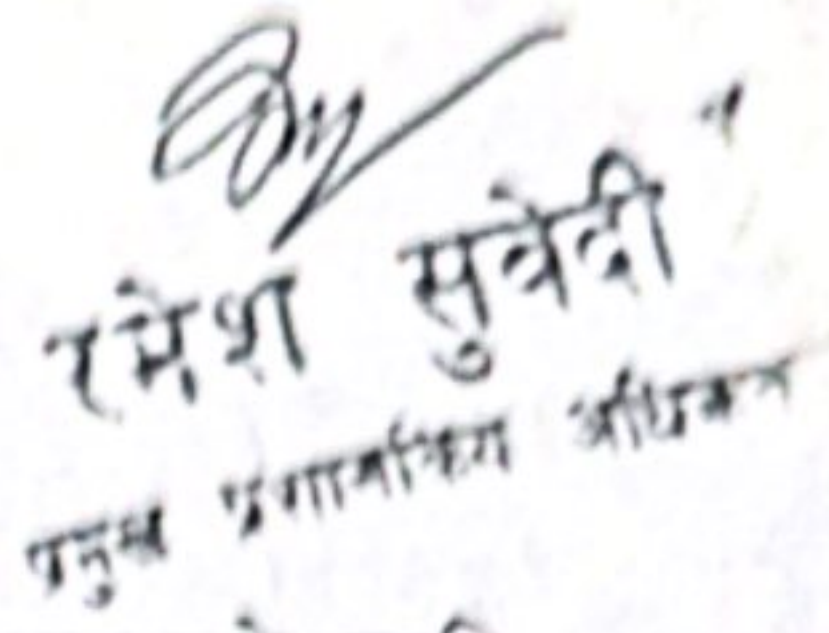 रमेश सुवेदी
प्रमुख प्रशासकिय अधिकृत